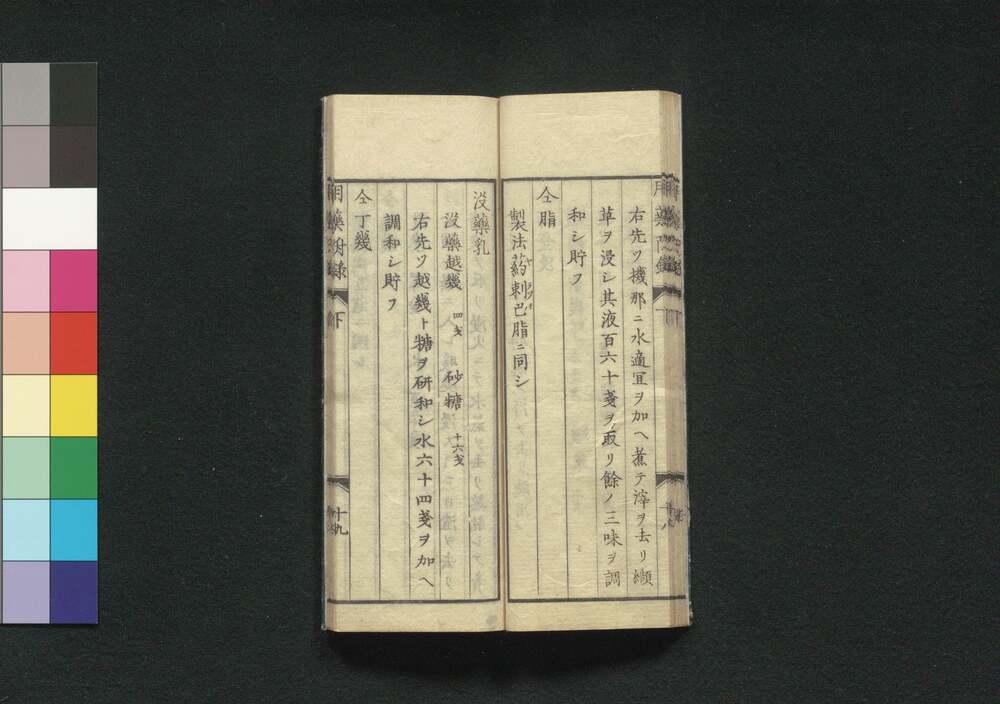 右先ツ機那ニ水適宜ヲ加ヘ煮テ滓ヲ去リ纈
草ヲ浸シ其液百六十戔ヲ取リ餘ノ三味ヲ調
和シ貯フ
仝脂
製法葯刺巴脂ニ同シ
没藥乳
没藥越幾 四戔 砂糖 十六戔
右先ツ越幾ト糖ヲ研和シ水六十四戔ヲ加ヘ
調和シ貯フ
仝丁幾
用藥附錄 下 十九